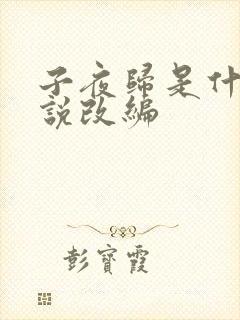 子夜歸是什
說改編
彭寶霞